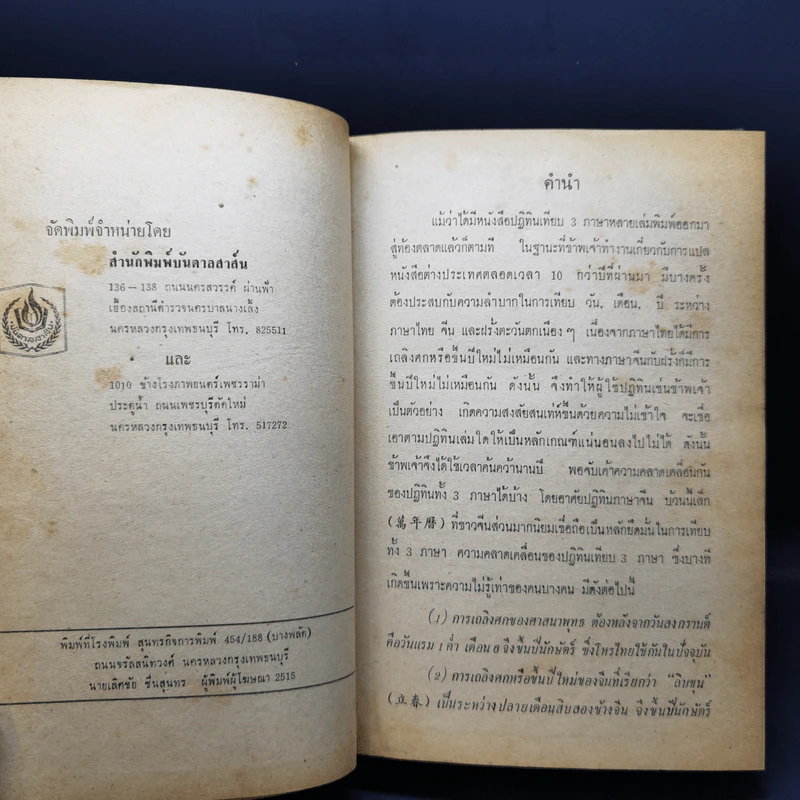 จัดพิมพ์จำหน่ายโดย
สำนักพิมพ์บันดาลสาส์น
136-138 ถนนนครสวรรค์ ผ่านฟ้า
เยื้องสถานีตำรวจนครบาลนางเลิ้ง
นครหลวงกรุงเทพธนบุรี โทร. 825511
และ
1010 ข้างโรงภาพยนตร์เพชรรามา
ประตูน้ำ ถนนเพชรบุรีตัดใหม่
นครหลวงกรุงเทพธนบุรี โทร. 517272
พิมพ์ที่โรงพิมพ์ สุนทรกิจการพิมพ์ 454/188 (บางพลัด)
ถนนจรัลสนิทวงศ์ นครหลวงกรุงเทพธนบุรี
นายเลิศชัย ชื่นสุนทร ผู้พิมพ์ผู้โฆษณา 2515
คำนำ
แม้ว่าได้มีหนังสือปฏิทินเทียบ 3 ภาษาหลายเล่มพิมพ์ออกมา
สู่ท้องตลาดแล้วก็ตามที ในฐานะที่ข้าพเจ้าทำงานเกี่ยวกับการแปล
หนังสือต่างประเทศตลอดเวลา 10 กว่าปีที่ผ่านมา มีบางครั้ง
ต้องประสบกับความลำบากในการเทียบ วัน, เดือน, ปี ระหว่าง
ภาษาไทย จีน และฝรั่งตะวันตกเนือง ๆ เนื่องจากภาษาไทยได้มีการ
เถลิงศกหรือขึ้นปีใหม่ไม่เหมือนกัน และทางภาษาจีนกับฝรั่งก็มีการ
ขึ้นปีใหม่ไม่เหมือนกัน ดังนั้น จึงทำให้ผู้ใช้ปฏิทินเช่นข้าพเจ้า
เป็นตัวอย่าง เกิดความสงสัยสนเท่ห์ขึ้นด้วยความไม่เข้าใจ จะเชื่อ
เอาตามปฏิทินเล่มใดให้เป็นหลักเกณฑ์แน่นอนลงไปไม่ได้ ดังนั้น
ข้าพเจ้าจึงได้ใช้เวลาค้นคว้านานปี พอจับเค้าความคลาดเคลื่อนกัน
ของปฏิทินทั้ง 3 ภาษาได้บ้าง โดยอาศัยปฏิทินภาษาจีน บ้วนนี้เล็ก
(萬年曆) ที่ชาวจีนส่วนมากนิยมเชื่อถือเป็นหลักยึดมั่นในการเทียบ
ทั้ง 3 ภาษา ความคลาดเคลื่อนของปฏิทินเทียบ 3 ภาษา ซึ่งบางที
เกิดขึ้นเพราะความไม่รู้เท่าของคนบางคน มีดังต่อไปนี้
(1) การเถลิงศกของศาสนาพุทธ ต้องหลังจากวันสงกรานต์
คือวันแรม 1 ค่ำ เดือน 6 จึงขึ้นปีนักษัตร์ ซึ่งโหรไทยใช้กันในปัจจุบัน
(2) การเถลิงศกหรือขึ้นปีใหม่ของจีนที่เรียกว่า “ลิบชุน”
(立春) เป็นระหว่างปลายเดือนสิบสองข้างจีน จึงขึ้นปีนักษัตร์